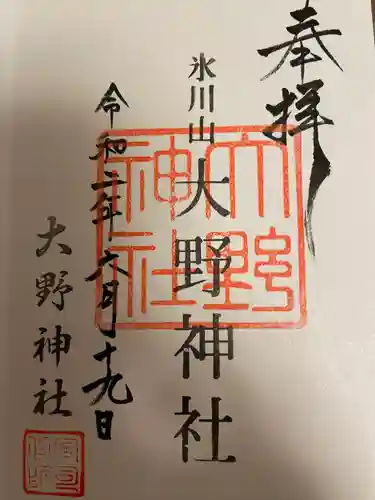 奉拝
氷川山
大野神社
大野神社
令和二年六月十九日
大野神社